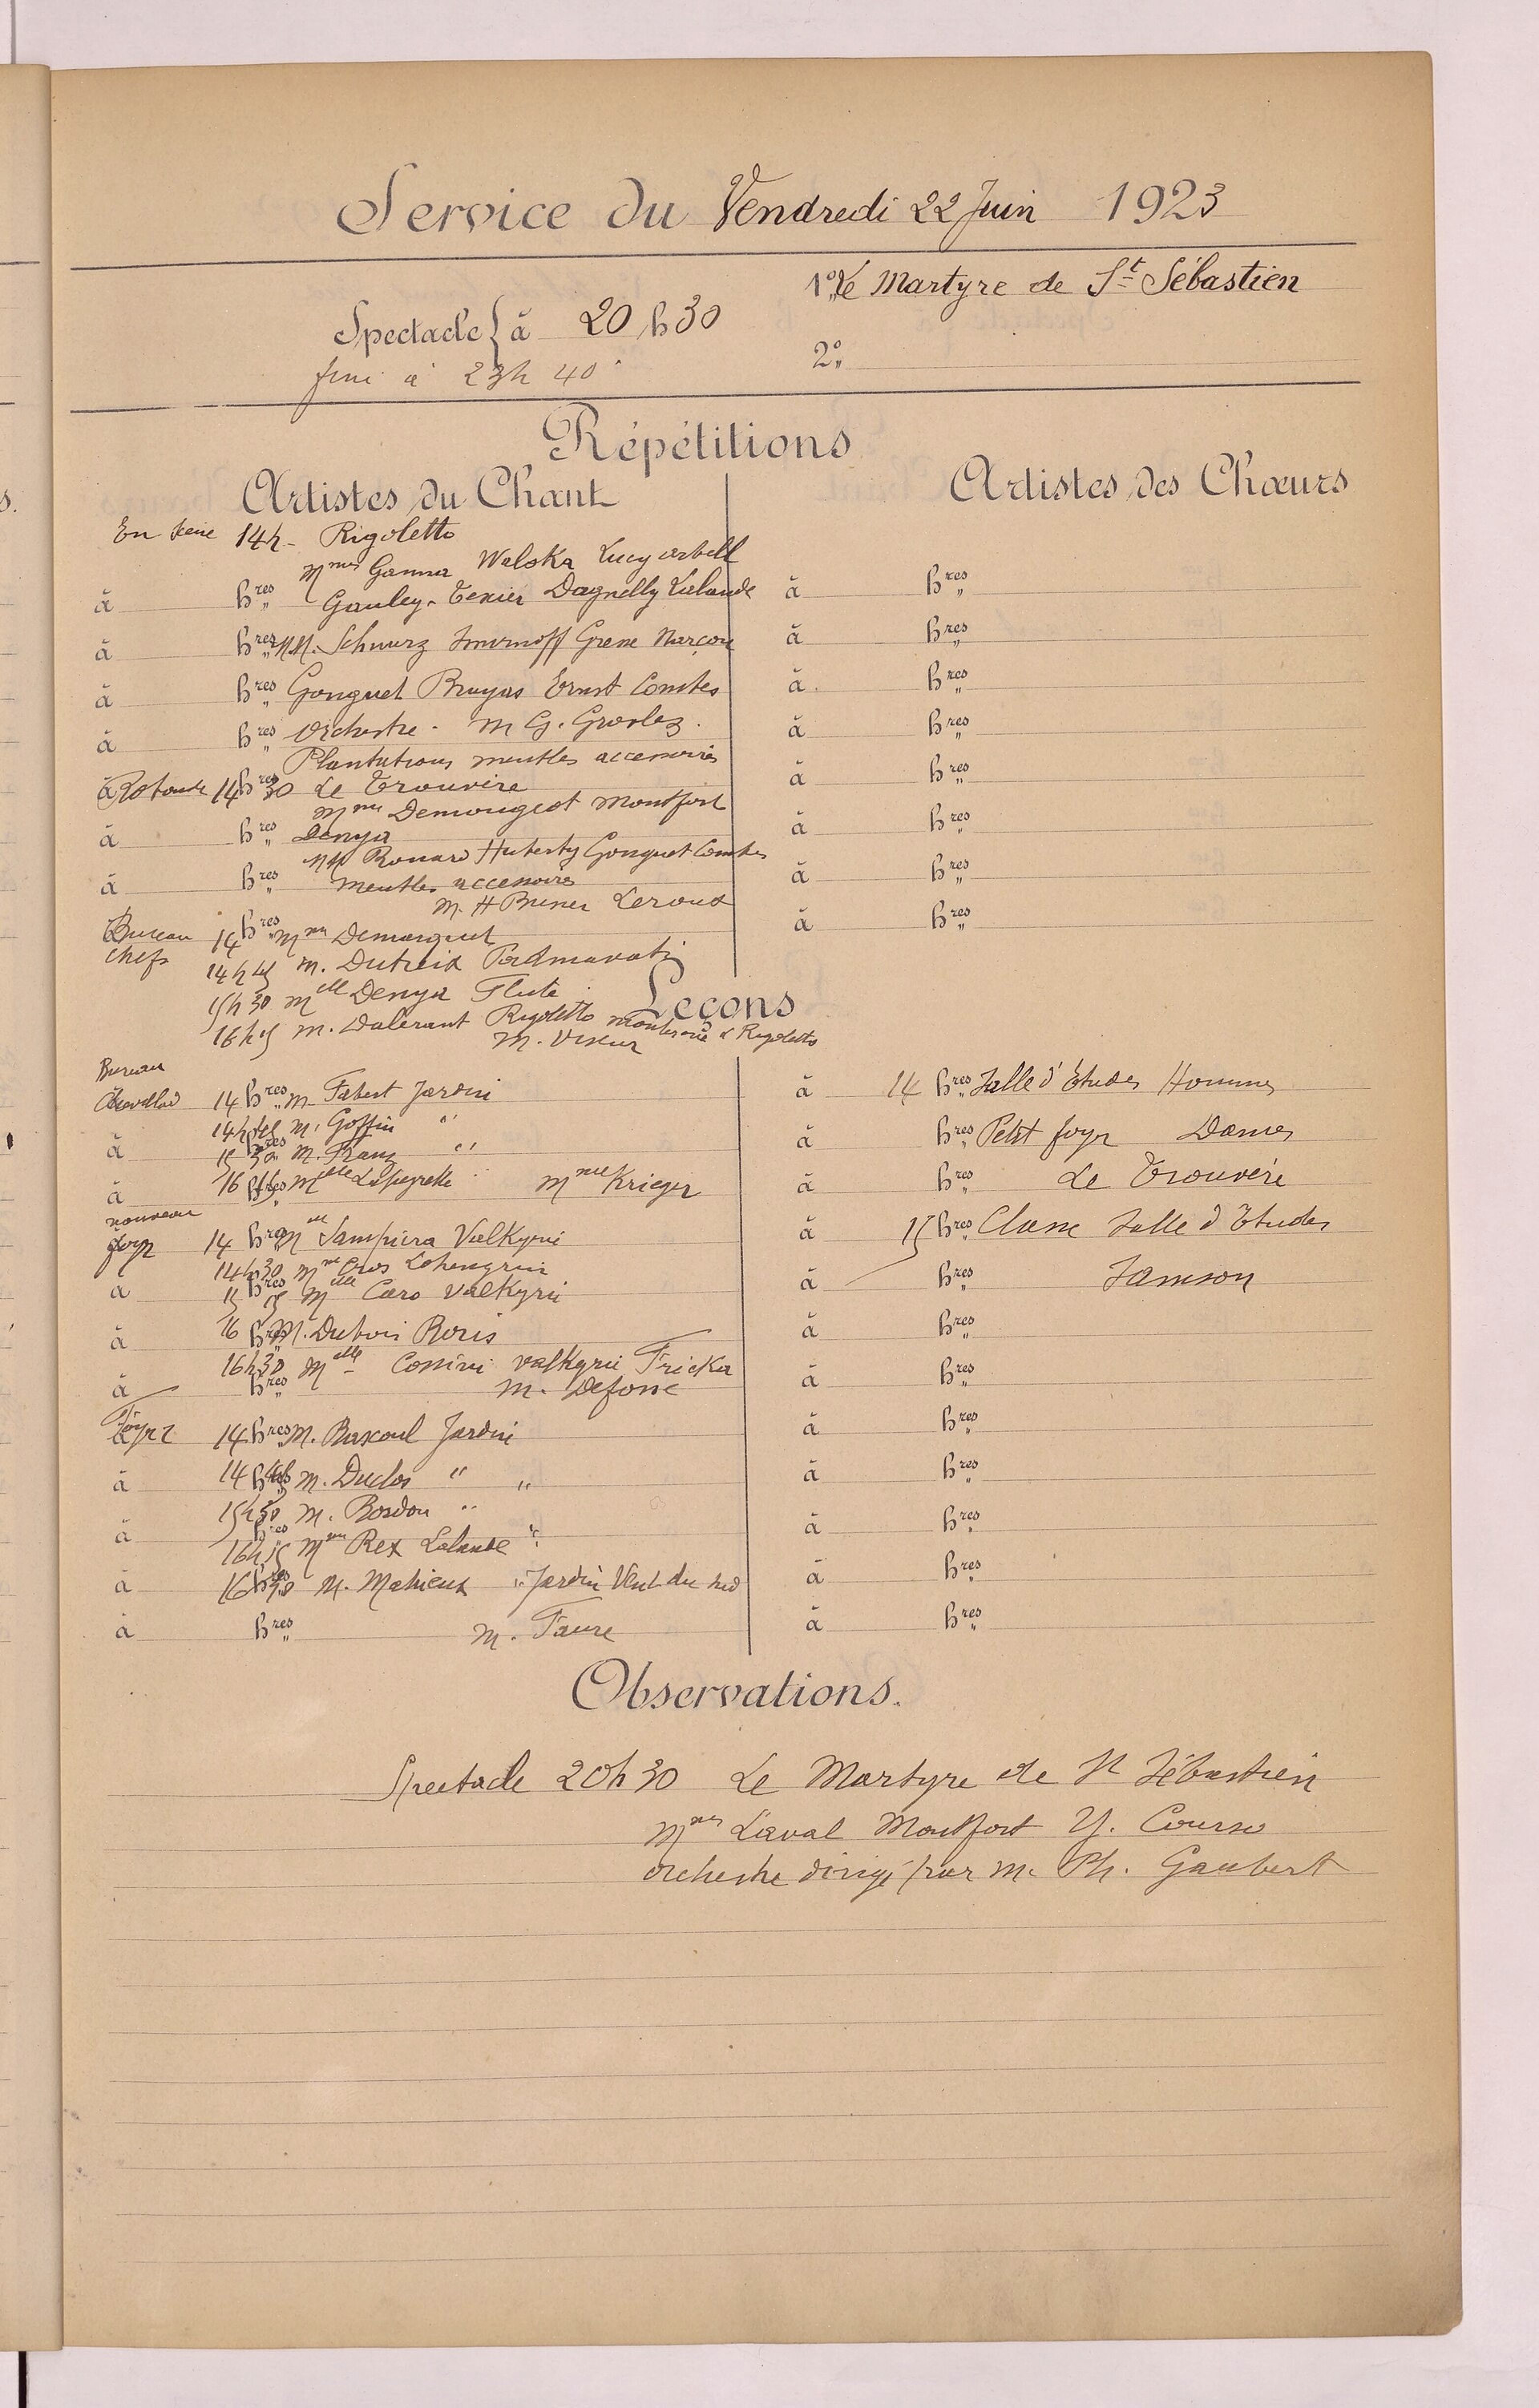 Service du Vendredi 22 Juin 1923
1° Le Martyre de St Sébastien
Spectacle à 20 h 30
fini à 23h 40
2°
Répétitions
Artistes du Chant
Artistes des Chœurs
En scène 14h - Rigoletto
Mmes Ganna Walska Lucy Arbell
à hres Gauley-Texier Dagnelly Lalande
à hres MM. Schwarz Smirnoff Gresse Narçon
à hres Gonguet Bruyas Ernst Combes
à hres Orchestre - M G. Grovlez.
Plantations meubles accessoires
à Rotonde 14 hres 30 Le Trouvère
Mmes Demougeot Montfort
à hres Denya
MM Rouard Huberty Gonguet Combes
à hres meubles accessoires
M. H Busser Leroux
Bureau 14 hres Mme Demarquet
chefs 14h45 M. Dutreix Padmavati
15h30 Melle Denya Flute
16h15 M. Dalerant Rigoletto & Rigoletto
M.
Leçons
Bureau
14 hres M. Fabert Jardin
14h45 M. Goffin "
à 15 30 M. Franz "
à 16 hres Melle Lapeyrette " Mme Krieger
nouveau
foyer 14 hres M Sampiera Valkyrie
14h30 Mme Cros Lohengrin
à 15 15 Melle Caro Valkyrie
à 16 hres M. Dubois Boris
16h30 Melle Cossini Valkyrie Fricka
à hres M. Defosse
Foyer 14 hres M. Bascoul Jardin
à 14 h45 M. Duclos " "
15h30 M. Bordon "
à hres
16h15 Mme Rex Lalande "
à 16 hres 30 M. Mahieux " Jardin Vent du sud
à hres M. Faure
à 14 hres Salle d'Etudes Hommes
à hres Petit foyer Dames
à hres Le Trouvère
à 15 hres Classe Salle d'Etudes
à hres Samson
Observations.
Spectacle 20h30 Le Martyre de St Sébastien
Mmes Laval Montfort Y. Courso
orchestre dirigé par M. Ph. Gaubert